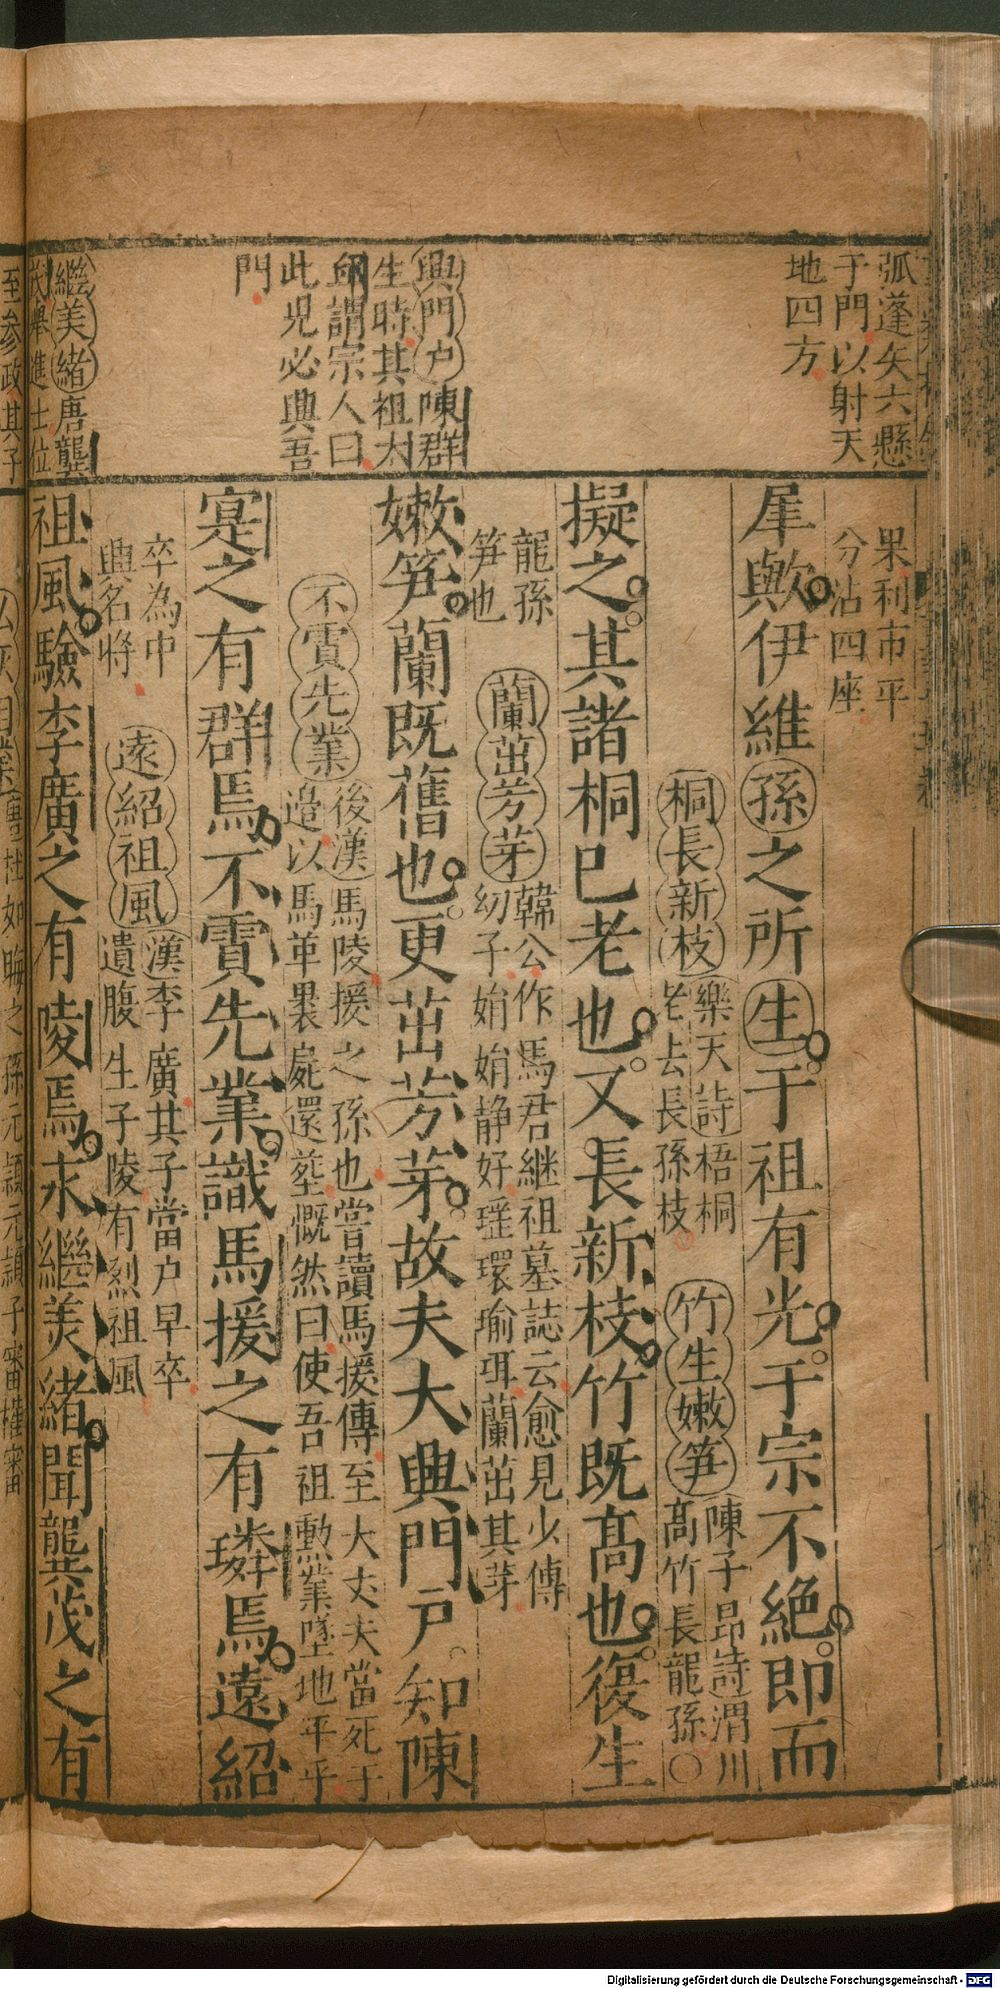 弧蓬矢六懸
于門以射天
地四方
興門户陳群
生時其祖大
謂宗人曰
此児必興吾
門
繼美緒唐龔
舉進士位
至参政其子
果利市平
分沾四座
犀歟伊維孫之所生于祖有光于宗不絶即而
桐長新枝樂天詩梧桐
老去長孫枝
竹生嫩笋陳子昂詩渭川
髙竹長龍孫〇
擬之其諸桐巳老也又長新枝竹既髙也復生
龍孫
笋也
蘭茁芳芽韓公作馬君継祖墓誌云愈見少傅
幼子娟娟静好瑶環瑜珥蘭茁其芽
嫩笋蘭既舊也更茁芳芽故夫大興門户知陳
不霣先業後漢馬陵援之孫也嘗讀馬援傳至大丈夫當死于
邉以馬革裹屍還塟慨然曰使吾祖勲業墜地平乎
寔之有群焉不霣先業識馬援之有璘焉遠紹
卒為中
興名將
遠紹祖風漢李廣其子當户早卒
遺腹生子陵有烈祖風
祖風驗李廣之有陵焉求繼美緒聞龔茂之有
如晦之孫元頴元頴子審權審
Digitalisierung gefördert durch die Deutsche Forschungsgemeinschaft - DFG